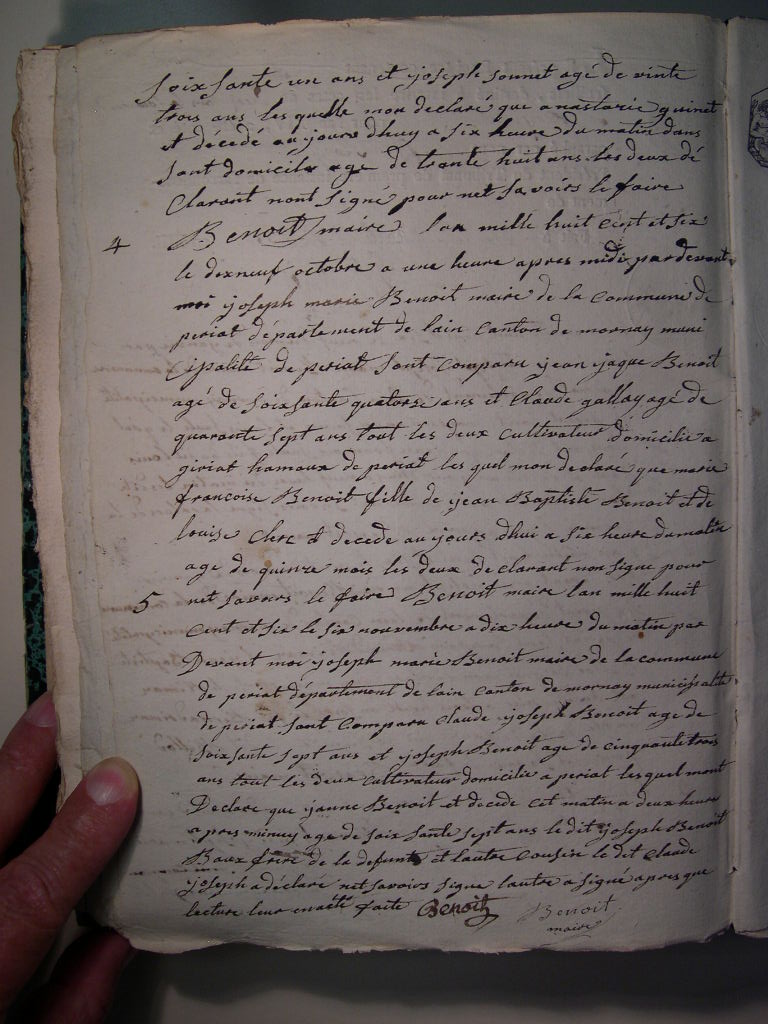 soixsante un ans et joseph sonnet agé de vinte
trois ans les quelle mon declaré que anastazie guinet
et décedé au jours dhuy a six heure du matin dans
sont domicile age de trante huit ans les deux dé
Clarant nont signé pour net savoirs le faire
4 Benoit maire lan mille huit Cent et six
le dixneuf octobre a une heure apres midi par devant
moi joseph marie Benoit maire de la Commune de
periat département de lain Canton de mornay muni
cipalité de periat sont Comparu jean jaque Benoit
agé de soixsante quatorse ans et Claude gallay agé de
quarante sept ans tout les deux Cultivateur domicilié a
giriat hamaux de periat les quel mon declaré que marie
francoise Benoit fille de jean Baptiste Benoit et de
louise Clerc et decede au jours dhui a six heure du matin
age de quinze mois les deux de clarant non signe pour
5 net savoirs le faire Benoit maire lan mille huit
Cent et six le six nouvembre a dix heure du matin par
Devant moi joseph marie Benoit maire de la commune
de periat département de lain Canton de mornay municipalité
de periat sont Comparu Claude joseph Benoit age de
soixsante sept ans et joseph Benoit age de cinquante trois
ans tout les deux Cultivateur domicilie a periat les quel mont
Declare que janne Benoit et decede cet matin a deux heure
apres minuy age de soix sante sept ans le dit joseph Benoit
Baux frere de la defunte et lautre Cousin le dit Claude
joseph a déclaré net savoirs signe lautre a signé apres que
lecture leur en aété faite Benoit Benoit
maire